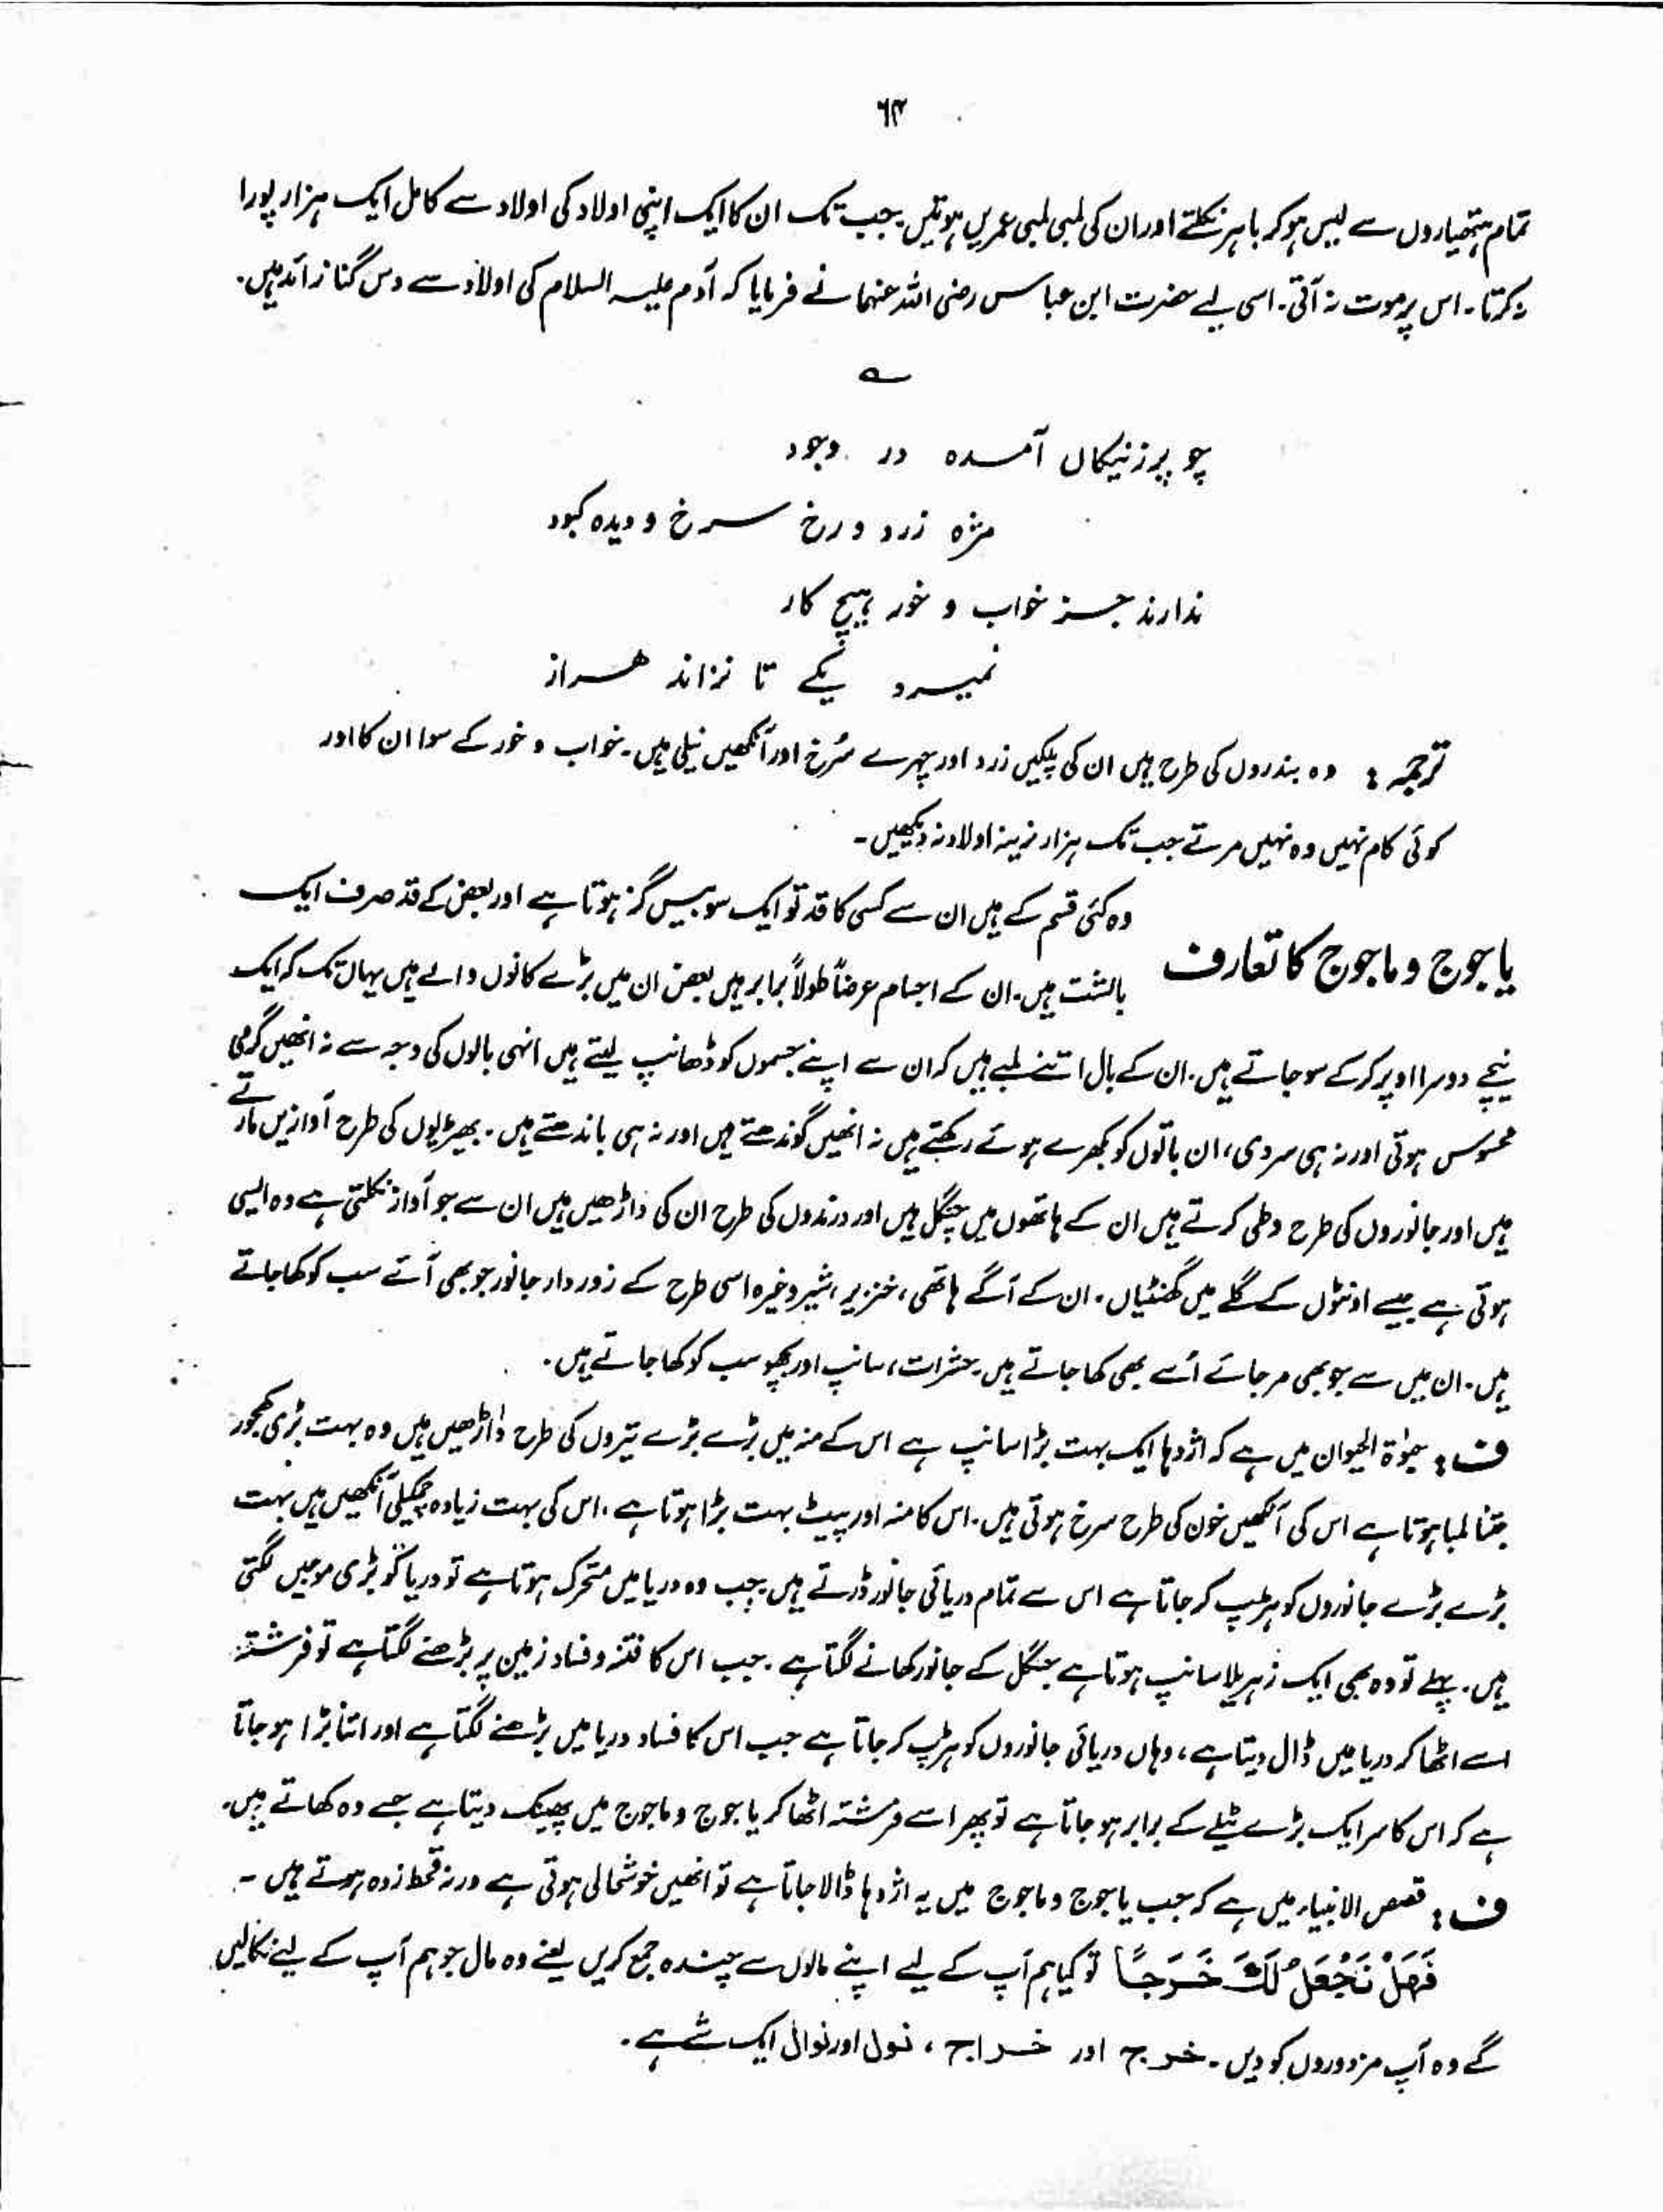 ٦٣
تمام ہتھیاروں سے لیس ہو کر باہر نکلتے اور ان کی لمبی لمبی عمریں ہوتیں۔ جب تک ان کا ایک اپنی اولاد کی اولاد سے کامل ایک ہزار پورا
نہ کرتا۔ اس پر موت نہ آتی۔ اسی لیے حضرت ابن عباس رضی اللہ عنہما نے فرمایا کہ آدم علیہ السلام کی اولاد سے دس گنا زائد ہیں۔
؎
چو بوزنیگاں آمدہ در وجود
مژہ زرد و رخ سرخ و دیدہ کبود
ندارند جز خواب و خور ہیچ کار
نمیرد یکے تا نزاند ہزار
ترجمہ: وہ بندروں کی طرح ہیں ان کی پلکیں زرد اور چہرے سُرخ اور آنکھیں نیلی ہیں۔ خواب و خور کے سوا ان کا اور
کوئی کام نہیں وہ نہیں مرتے جب تک ہزار نرینہ اولاد نہ دیکھیں۔
یاجوج و ماجوج کا تعارف
وہ کئی قسم کے ہیں ان سے کسی کا قد تو ایک سو بیس گز ہوتا ہے اور بعض کے قد صرف ایک
بالشت ہیں۔ ان کے اجسام عرضاً طولاً برابر ہیں بعض ان میں بڑے کانوں والے ہیں یہاں تک کہ ایک
نیچے دوسرا اوپر کر کے سو جاتے ہیں۔ ان کے بال اتنے لمبے ہیں کہ ان سے اپنے جسموں کو ڈھانپ لیتے ہیں انہی بالوں کی وجہ سے نہ انھیں گرمی
محسوس ہوتی اور نہ ہی سردی، ان باتوں کو بکھرے ہوئے رکھتے ہیں نہ انھیں گوندھتے ہیں اور نہ ہی باندھتے ہیں۔ بھیڑیوں کی طرح آوازیں مارتے
ہیں اور جانوروں کی طرح وطی کرتے ہیں ان کے ہاتھوں میں چنگل ہیں اور درندوں کی طرح ان کی داڑھیں ہیں ان سے جو آواز نکلتی ہے وہ ایسی
ہوتی ہے جیسے اونٹوں کے گلے میں گھنٹیاں۔ ان کے آگے ہاتھی، خنزیر، شیر وغیرہ اسی طرح کے زور دار جانور جو بھی آئے سب کو کھا جاتے
ہیں۔ ان میں سے جو بھی مر جائے اُسے بھی کھا جاتے ہیں۔ حشرات، سانپ اور بچھو سب کو کھا جاتے ہیں۔
ف: حیوٰۃ الحیوان میں ہے کہ اژدہا ایک بہت بڑا سانپ ہے اس کے منہ میں بڑے بڑے تیروں کی طرح داڑھیں ہیں وہ بہت بڑی کھجور
جتنا لمبا ہوتا ہے اس کی آنکھیں خون کی طرح سرخ ہوتی ہیں۔ اس کا منہ اور پیٹ بہت بڑا ہوتا ہے۔ اس کی بہت زیادہ چمکیلی آنکھیں ہیں بہت
بڑے بڑے جانوروں کو ہڑپ کر جاتا ہے اس سے تمام دریائی جانور ڈرتے ہیں۔ جب وہ دریا میں متحرک ہوتا ہے تو دریا کو بڑی موجیں لگتی
ہیں۔ پہلے تو وہ بھی ایک زہریلا سانپ ہوتا ہے جنگل کے جانور کھانے لگتا ہے۔ جب اس کا فتنہ و فساد زمین پر بڑھنے لگتا ہے تو فرشتہ
اسے اٹھا کر دریا میں ڈال دیتا ہے، وہاں دریائی جانوروں کو ہڑپ کر جاتا ہے جب اس کا فساد دریا میں بڑھنے لگتا ہے اور اتنا بڑا ہو جاتا
ہے کہ اس کا سر ایک بڑے ٹیلے کے برابر ہو جاتا ہے تو پھر اسے فرشتہ اٹھا کر یاجوج و ماجوج میں پھینک دیتا ہے جسے وہ کھاتے ہیں۔
ف: قصص الانبیاء میں ہے کہ جب یاجوج و ماجوج میں یہ اژدہا ڈالا جاتا ہے تو انھیں خوشحالی ہوتی ہے ورنہ قحط زدہ ہوتے ہیں۔
فَهَلْ نَجْعَلُ لَكَ خَرْجًا تو کیا ہم آپ کے لیے اپنے مالوں سے چندہ جمع کریں یعنے وہ مال جو ہم آپ کے لیے نکالیں
گے وہ آپ مزدوروں کو دیں۔ خرج اور خراج، نول اور نوال ایک شے ہے۔